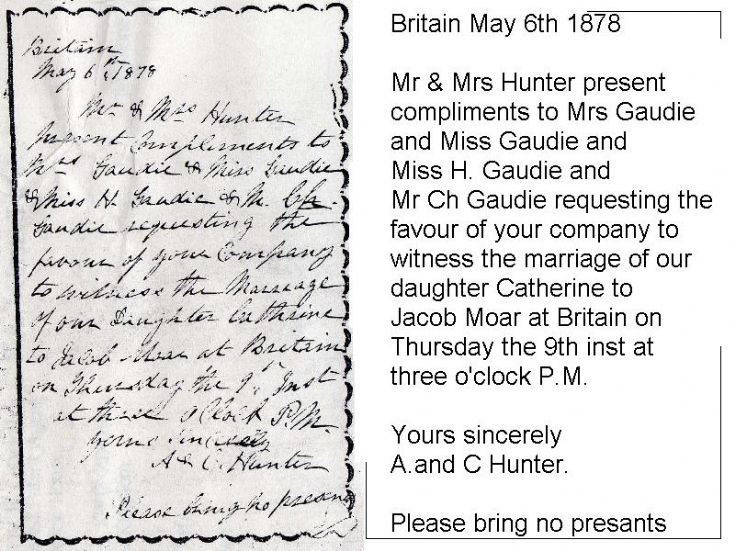 Britain
May 6th 1878
Mr & Mrs Hunter
present Compliments to
Mrs Gaudie & Miss Gaudie
& Miss H. Gaudie & M. Ch.
Gaudie requesting the
favour of your Company
to witness the Marriage
of our Daughter Cathrine
to Jacob Moar at Britain
on Thursday the 9th Inst
at three o Clock P.M.
yours sincerely
A & C. Hunter
Please bring no presen
Britain May 6th 1878
Mr & Mrs Hunter present
compliments to Mrs Gaudie
and Miss Gaudie and
Miss H. Gaudie and
Mr Ch Gaudie requesting the
favour of your company to
witness the marriage of our
daughter Catherine to
Jacob Moar at Britain on
Thursday the 9th inst at
three o'clock P.M.
Yours sincerely
A.and C Hunter.
Please bring no presants